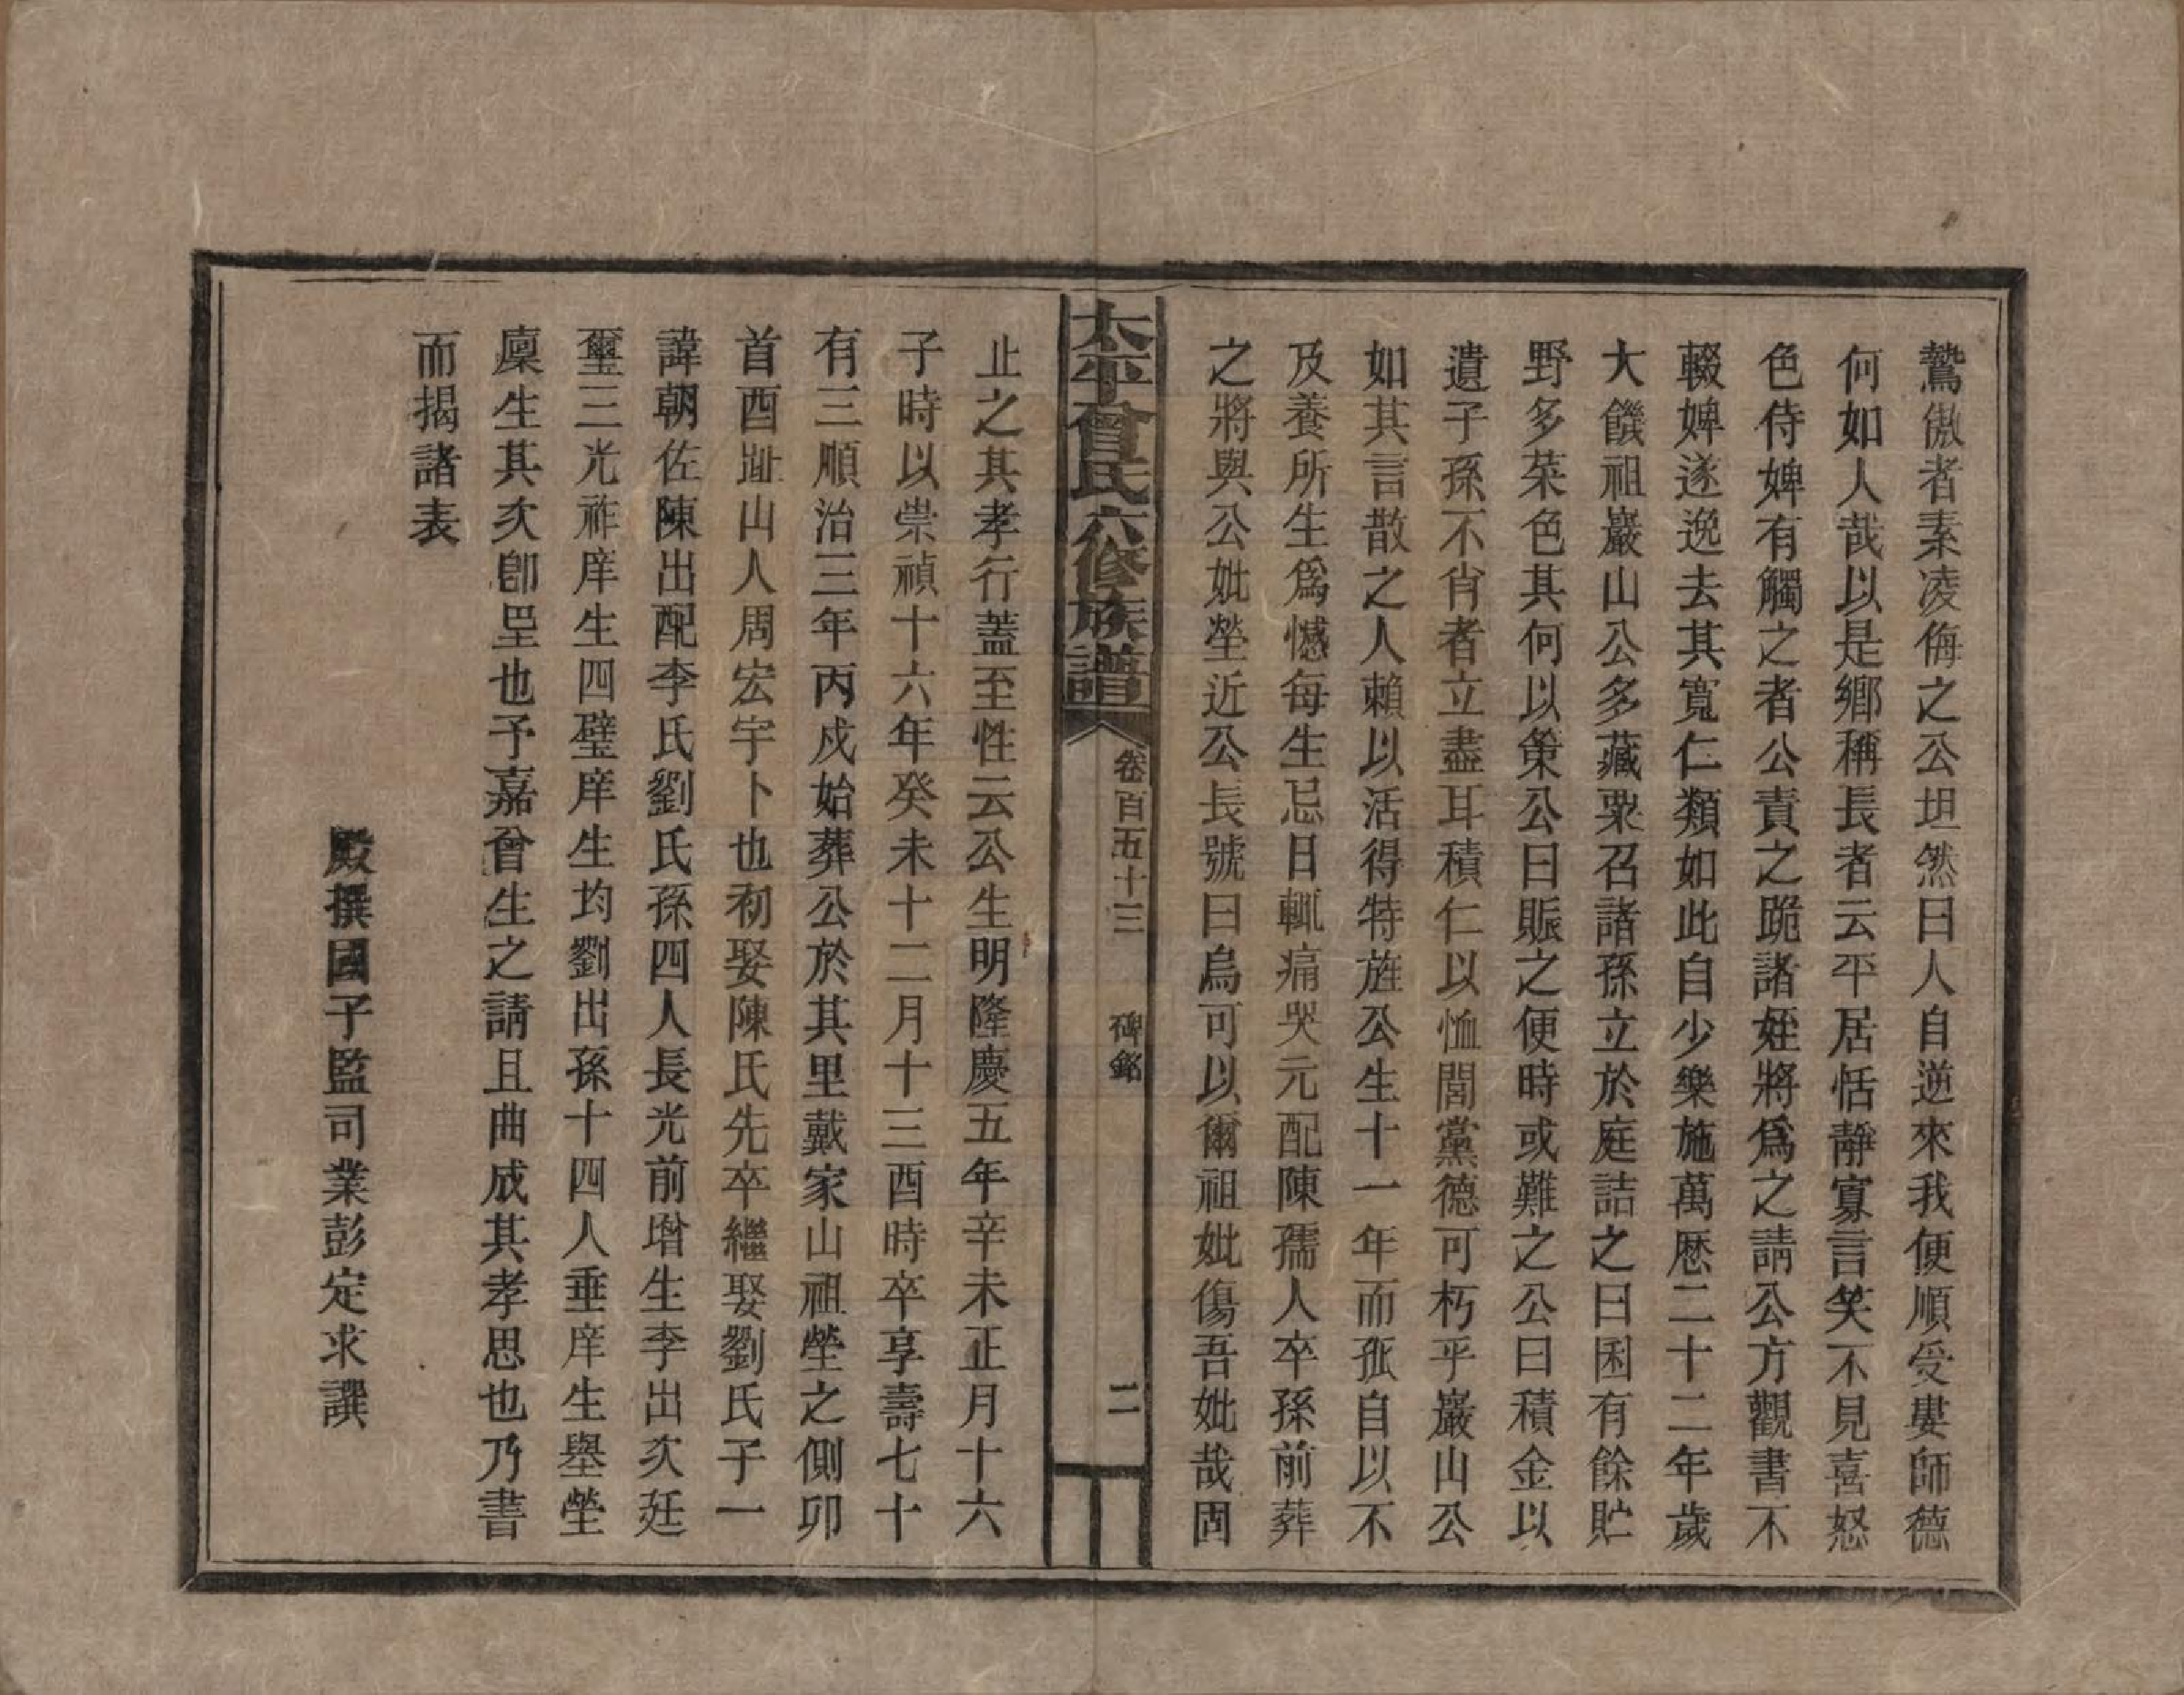 鷙傲者素凌侮之公坦然曰人自逆來我便順受婁師德
何如人哉以是鄉稱長者云平居恬靜寡言笑不見喜怒
色侍婢有觸之者公責之跪諸姪將爲之請公方觀書不
輟婢遂逸去其寬仁類如此自少樂施萬厯二十二年歲
大饑祖巖山公多藏粟召諸孫立於庭詰之曰囷有餘貯
野多菜色其何以策公曰賑之便時或難之公曰積金以
遺子孫不肖者立盡耳積仁以恤閭黨德可朽乎巖山公
如其言散之人賴以活得特旌公生十一年而孤自以不
及養所生爲憾每生忌日輒痛哭元配陳孺人卒孫前葬
之將與公妣塋近公長號曰烏可以爾祖妣傷吾妣哉固
太平曾氏六修族譜
卷百五十三
碑銘
二
止之其孝行蓋至性云公生明隆慶五年辛未正月十六
子時以崇禎十六年癸未十二月十三酉時卒享壽七十
有三順治三年丙戌始葬公於其里戴家山祖塋之側卯
首酉趾山人周宏宇卜也初娶陳氏先卒繼娶劉氏子一
諱朝佐陳出配李氏劉氏孫四人長光前增生李出次廷
璽三光祚庠生四璧庠生均劉出孫十四人垂庠生舉塋
廩生其次卽垕也予嘉曾生之請且曲成其孝思也乃書
而揭諸表
殿撰國子監司業彭定求譔